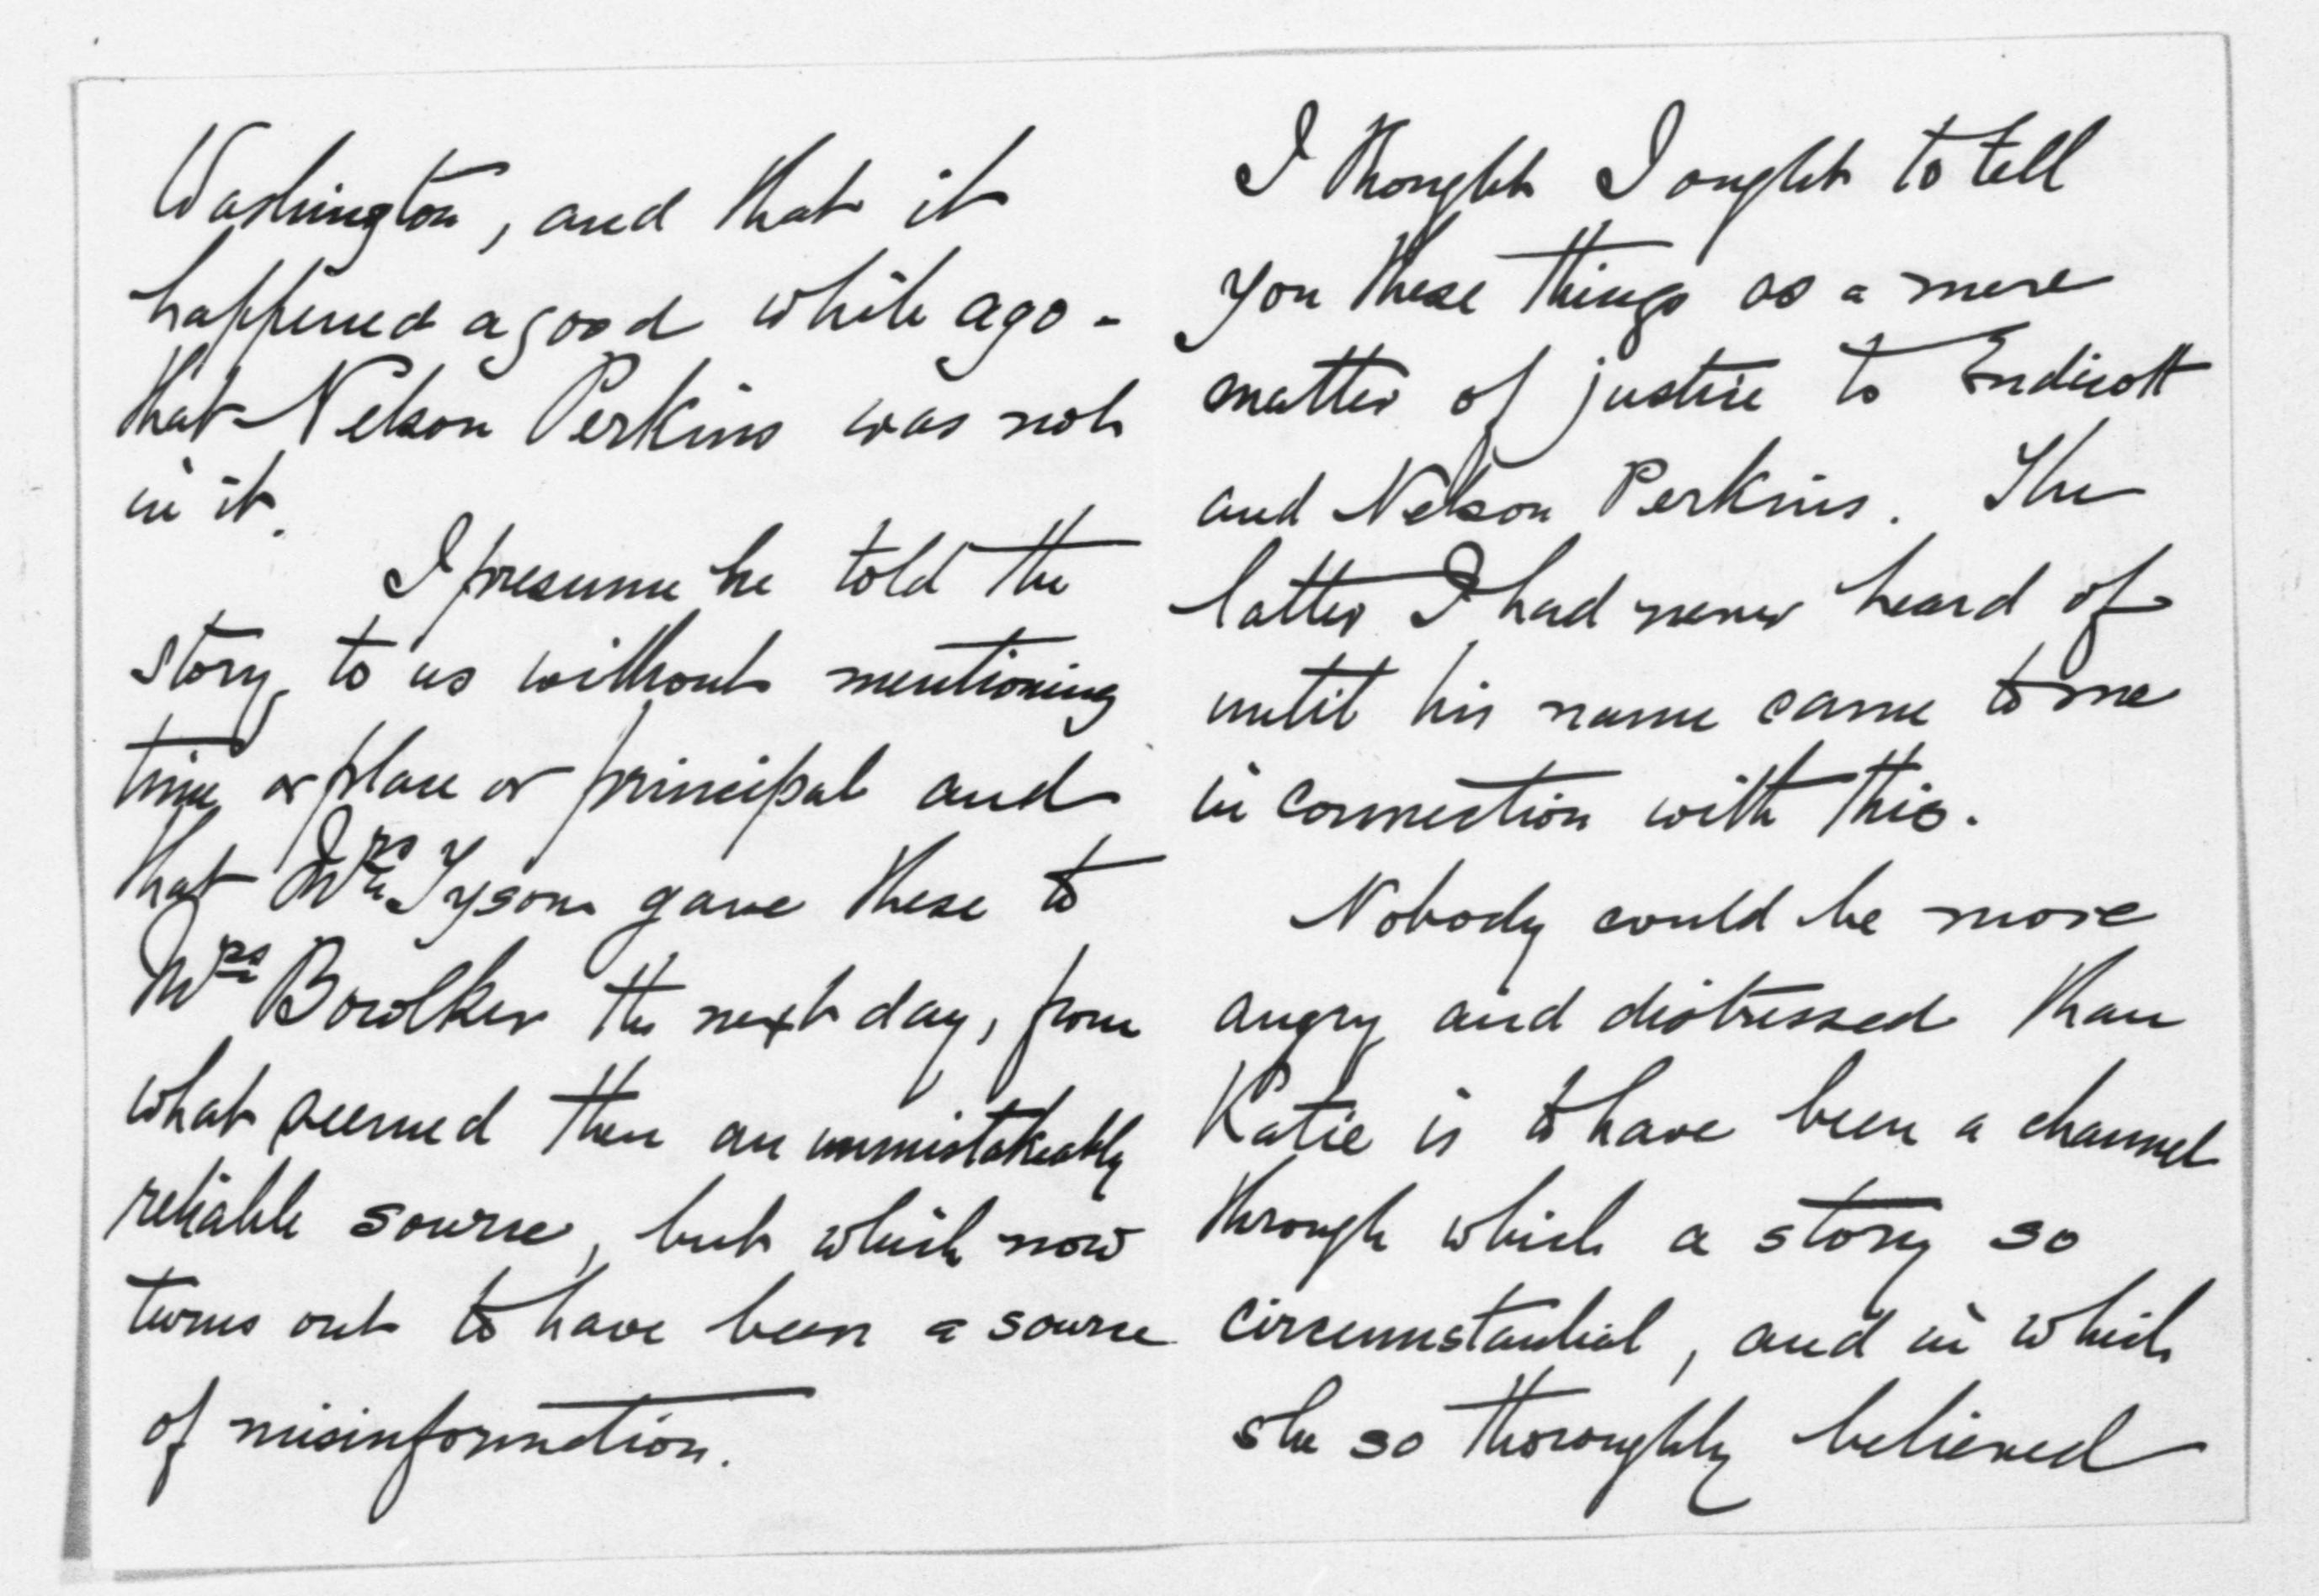 Washington, and that it
happened a good while ago -
that Nelson Perkins was not
in it.
I presume he told the
story to us without mentioning
time or place or principal and
that Mrs Tyson gave these to
Mrs Bowlker the next day, from
what seemed then an unmistakeably
reliable source, but which now
turns out to have been a source
of misinformation.
I thought I ought to tell
you these things as a mere
matter of justice to Endicott
and Nelson Perkins. The
latter I had never heard of
until his name came to me
in connection with this.
Nobody could be more
angry and distressed than
Katie is to have been a channel
through which a story so
circumstantial, and in which
she so thoroughly believed